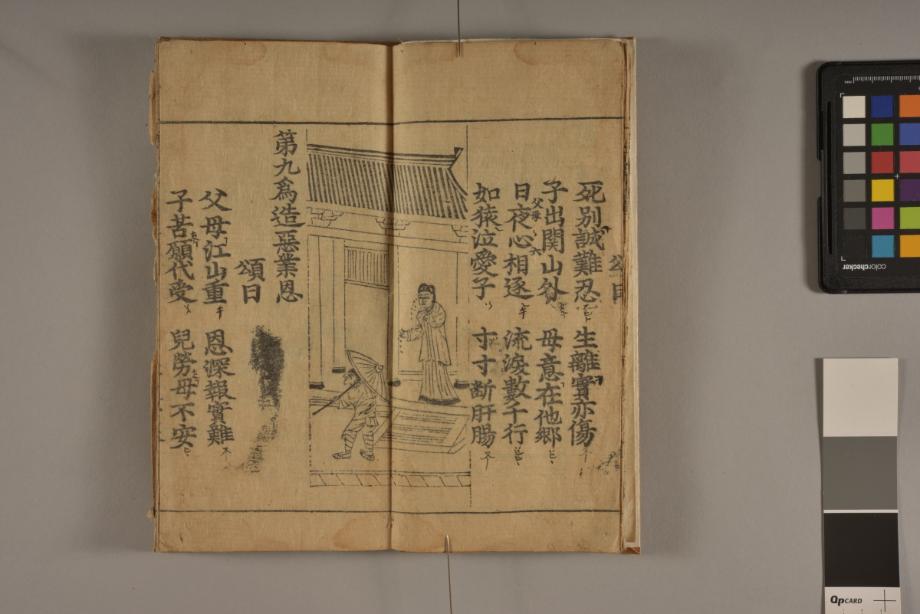 頌曰
死別誠難忍 生離實亦傷
子出関山外 母意在他鄉
日夜心相逐 流淚數千行
如猿泣愛子 寸寸断肝腸
第九為造惡業恩
頌曰
父母江山重 恩深報實難
子苦願代受 兒勞母不安
colorchecker
QpCARD